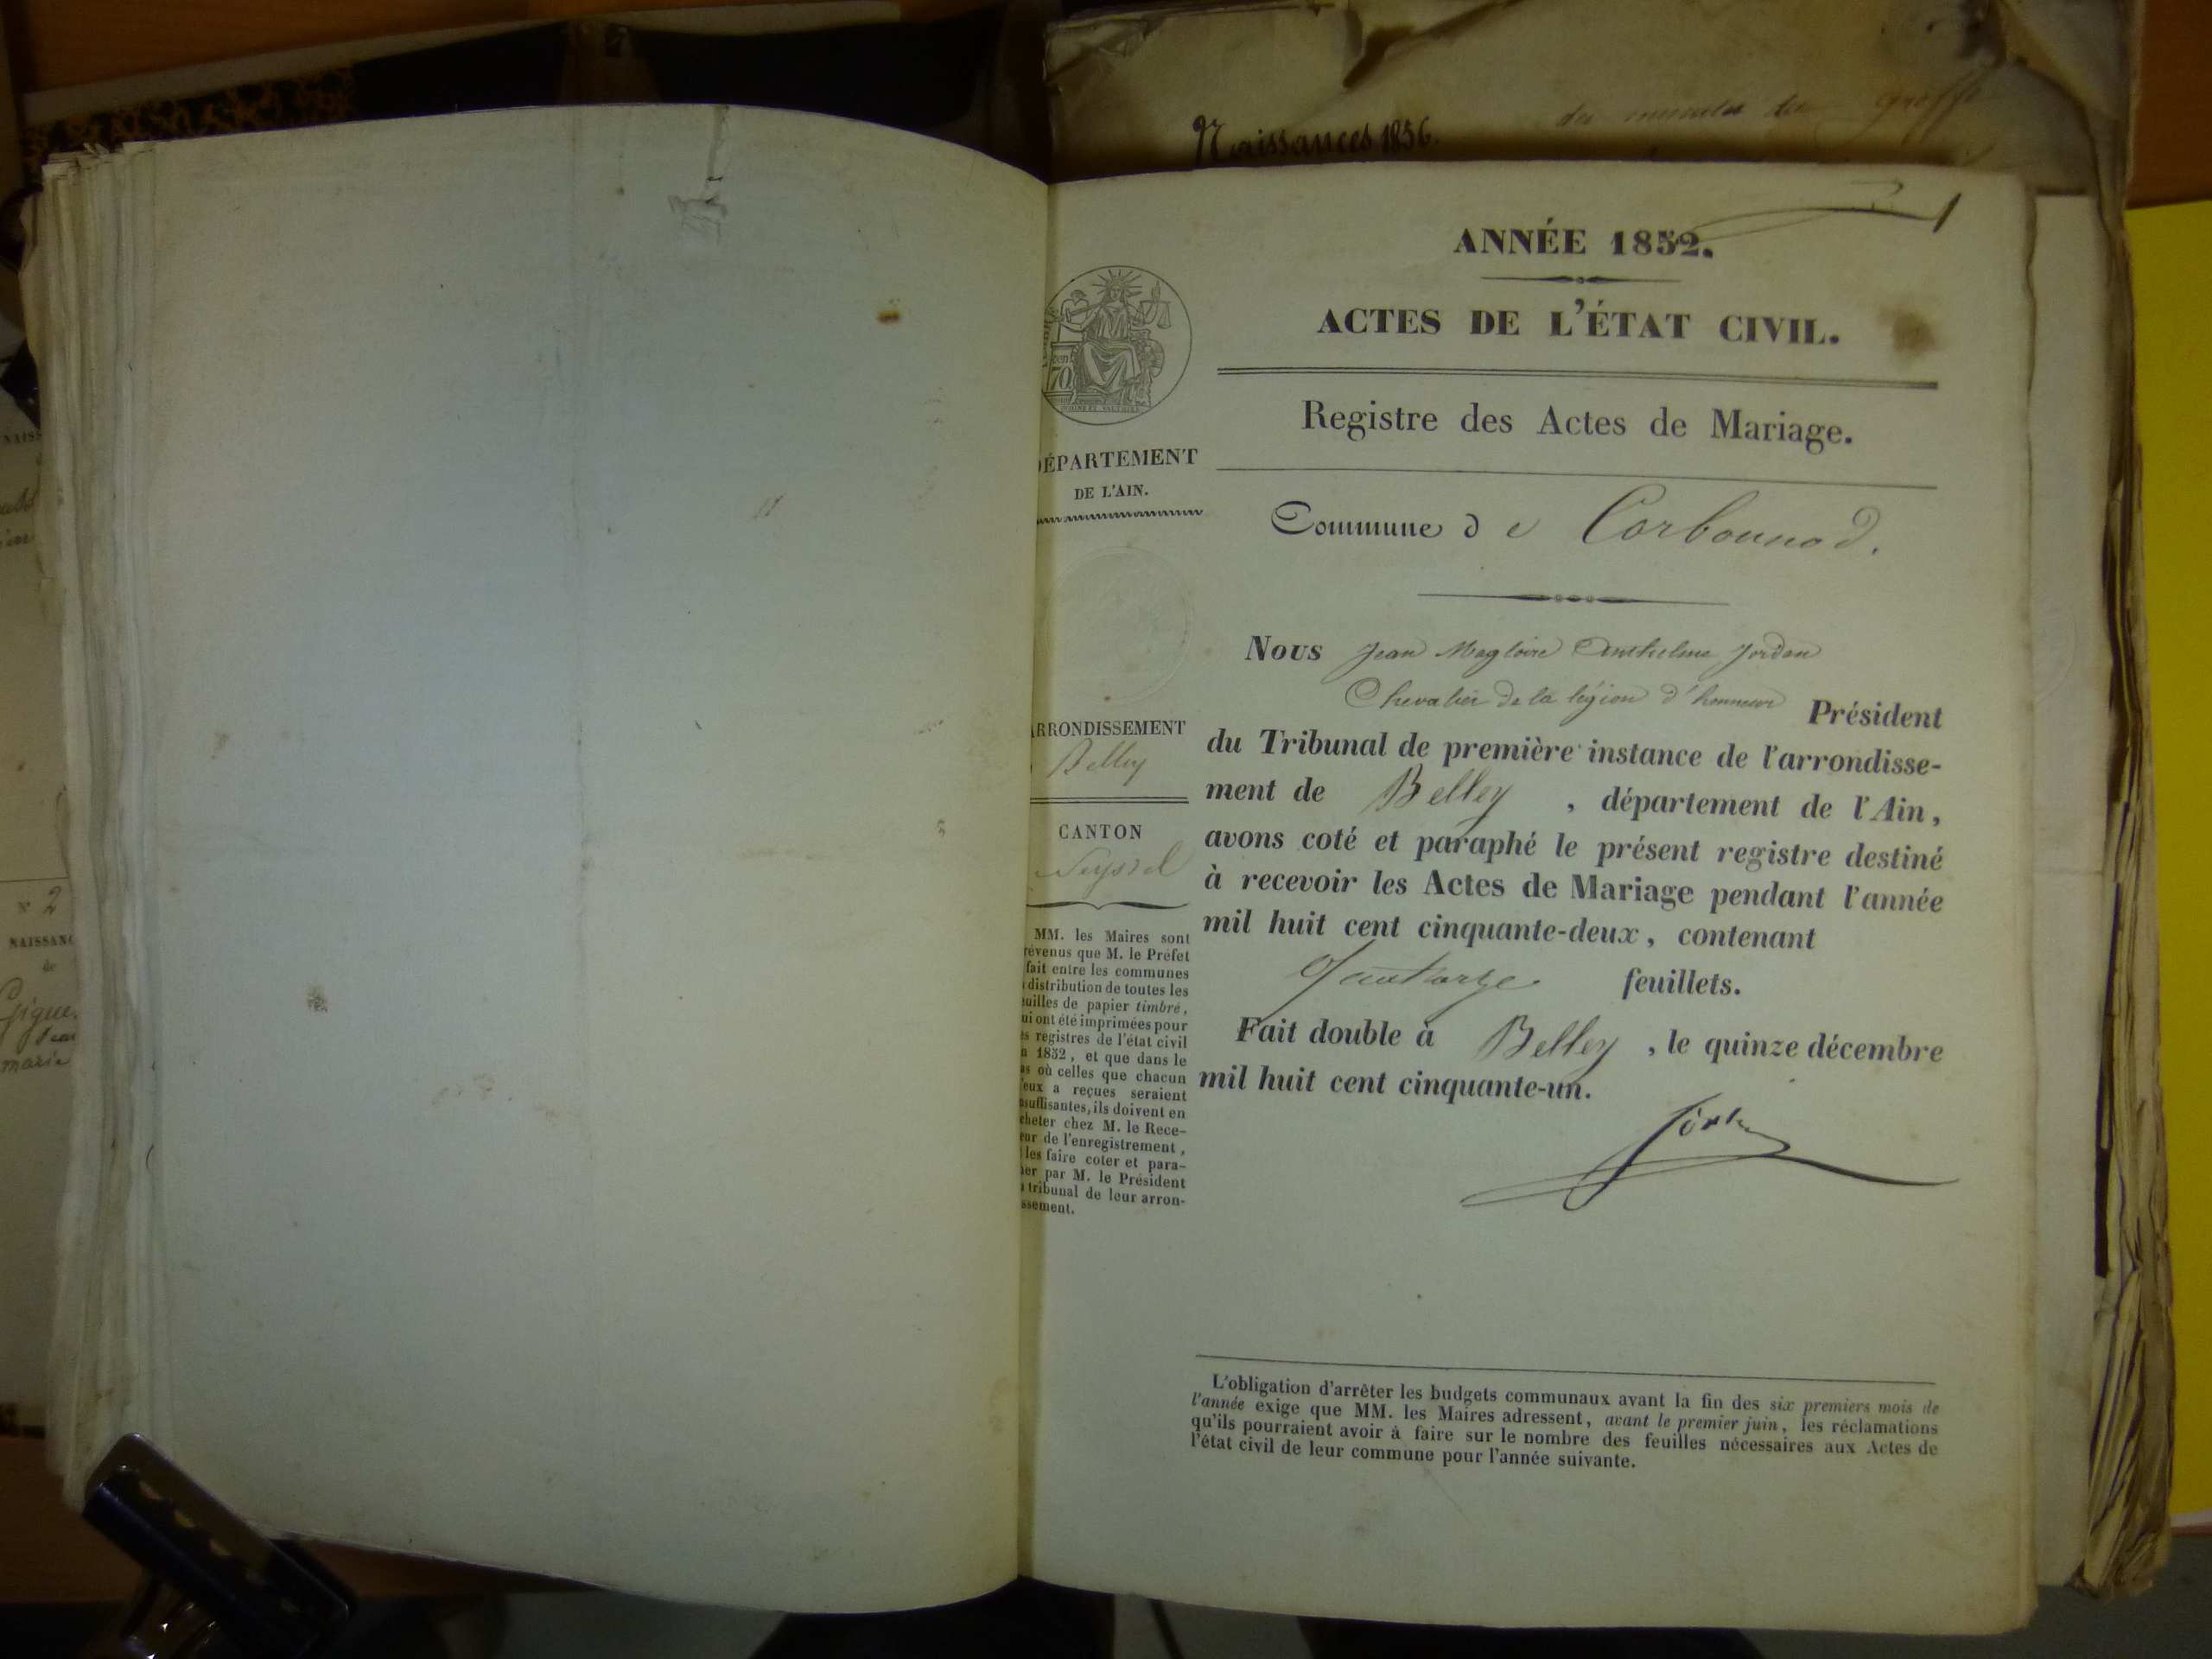 Naissances 1856.
greffe
ANNÉE 1852.
ACTES DE L'ÉTAT CIVIL.
Registre des Actes de Mariage.
70
ÉPARTEMENT
DE L'AIN.
Commune de Corbonnod.
Nous Jean Magloire Anthelme Jordan
Chevalier de la légion d'honneur Président
du Tribunal de première instance de l'arrondisse-
ment de Belley, département de l'Ain,
avons coté et paraphé le présent registre destiné
à recevoir les Actes de Mariage pendant l'année
mil huit cent cinquante-deux, contenant
Quatorze feuillets.
Fait double à Belley, le quinze décembre
mil huit cent cinquante-un.
RRONDISSEMENT
Belley
CANTON
Seyssel
MM. les Maires sont
révenus que M. le Préfet
fait entre les communes
distribution de toutes les
euilles de papier timbré,
ui ont été imprimées pour
es registres de l'état civil
n 1852, et que dans le
as où celles que chacun
'eux a reçues seraient
nsuffisantes, ils doivent en
cheter chez M. le Rece-
eur de l'enregistrement,
les faire coter et para-
her par M. le Président
u tribunal de leur arron-
ssement.
L'obligation d'arrêter les budgets communaux avant la fin des six premiers mois de
l'année exige que MM. les Maires adressent, avant le premier juin, les réclamations
qu'ils pourraient avoir à faire sur le nombre des feuilles nécessaires aux Actes de
l'état civil de leur commune pour l'année suivante.
N° 2
NAISSANC
de
Gigue
Jean
marie